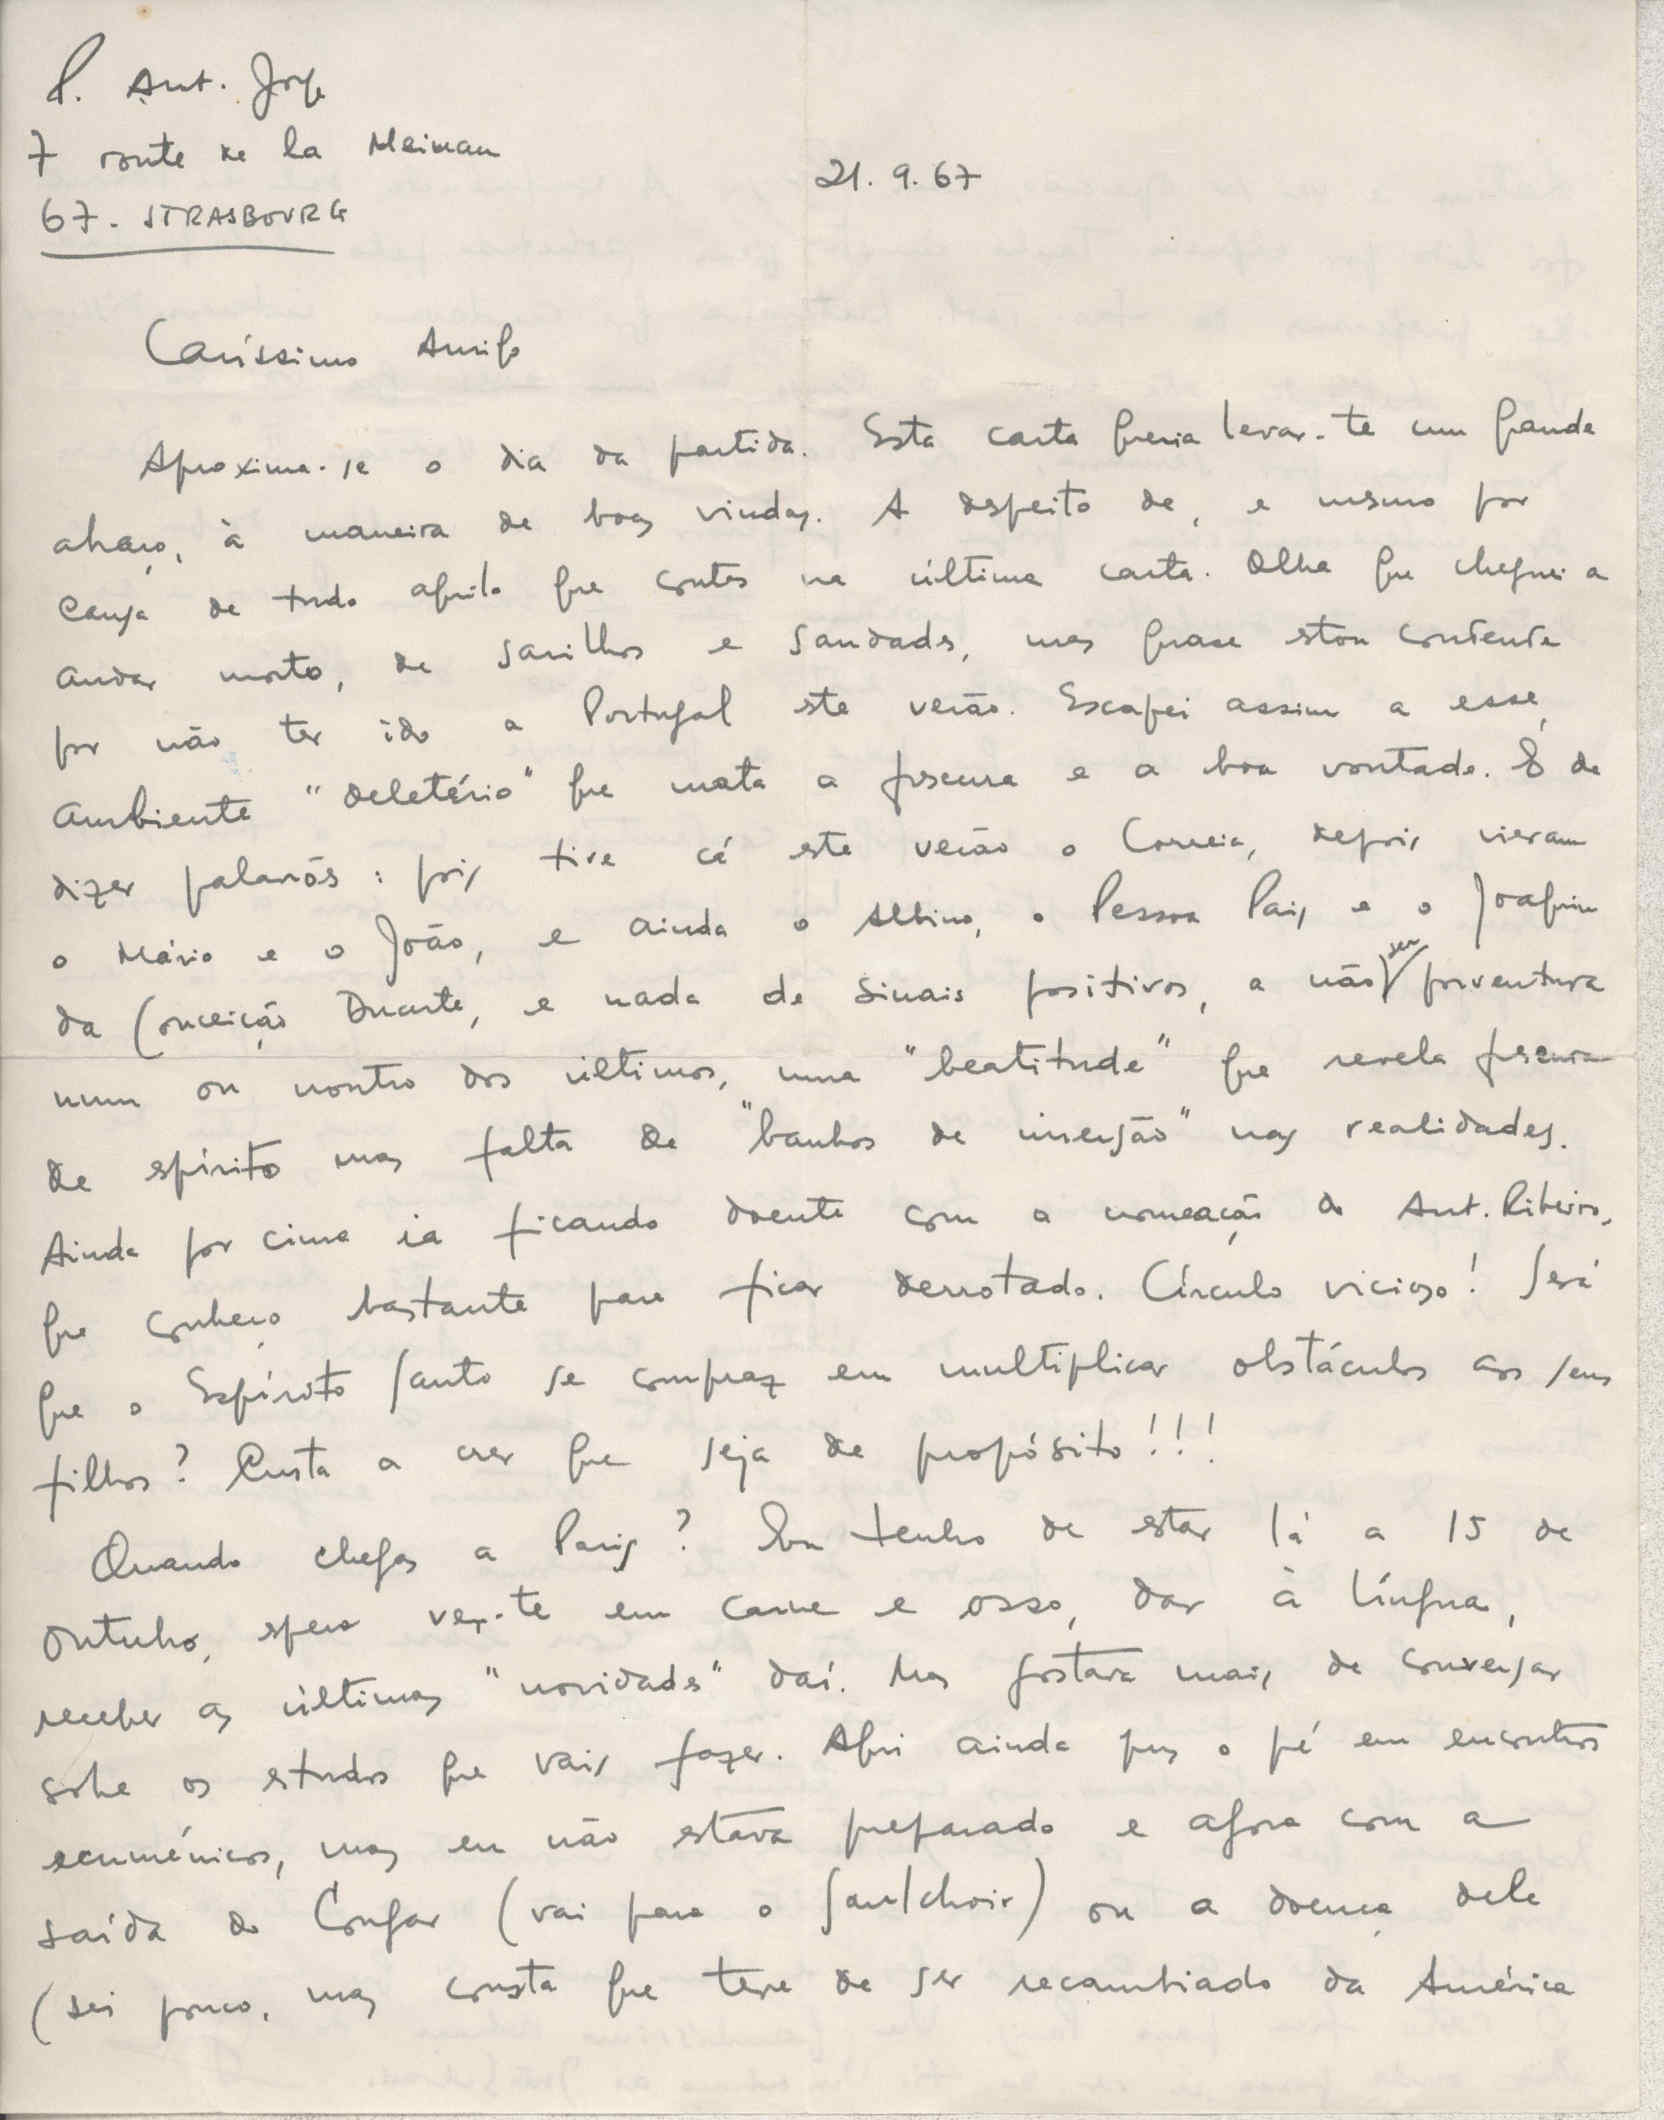 P. Ant. Jorge
7 route de la Meinau
67. STRASBOURG
21. 9. 67
Caríssimo Amigo
Aproxima-se o dia da partida. Esta carta queria levar-te um grande
abraço, à maneira de boas vindas. A despeito de, e mesmo por
causa de tudo aquilo que contas na última carta. Olha que cheguei a
andar morto, de sarilhos e saudades, mas quase estou contente
por não ter ido a Portugal este verão. Escapei assim a esse
ambiente "deletério" que mata a frescura e a boa vontade. É de
dizer palavrões: pois tive cá este verão o Correia, depois vieram
o Mário e o João, e ainda o Albino, o Pessoa Pais e o Joaquim
da Conceição Duarte, e nada de sinais positivos, a não ser porventura
num ou noutro dos últimos, uma "beatitude" que revela frescura
de espírito mas falta de "banhos de inserção" nas realidades.
Ainda por cima ia ficando doente com a nomeação do Ant. Ribeiro,
que conheço bastante para ficar derrotado. Círculo vicioso! Será
que o Espírito Santo se compraz em multiplicar obstáculos aos seus
filhos? Custa a crer que seja de propósito!!!
Quando chegas a Paris? Eu tenho de estar lá a 15 de
Outubro, espero ver-te em carne e osso, dar à língua,
receber as últimas "novidades" daí. Mas gostava mais de conversar
sobre os estudos que vais fazer. Aqui ainda pus o pé em encontros
ecuménicos, mas eu não estava preparado e agora com a
saída do Congar (vai para o Saulchoir) ou a doença dele
(sei pouco, mas consta que teve de ser recambiado da América